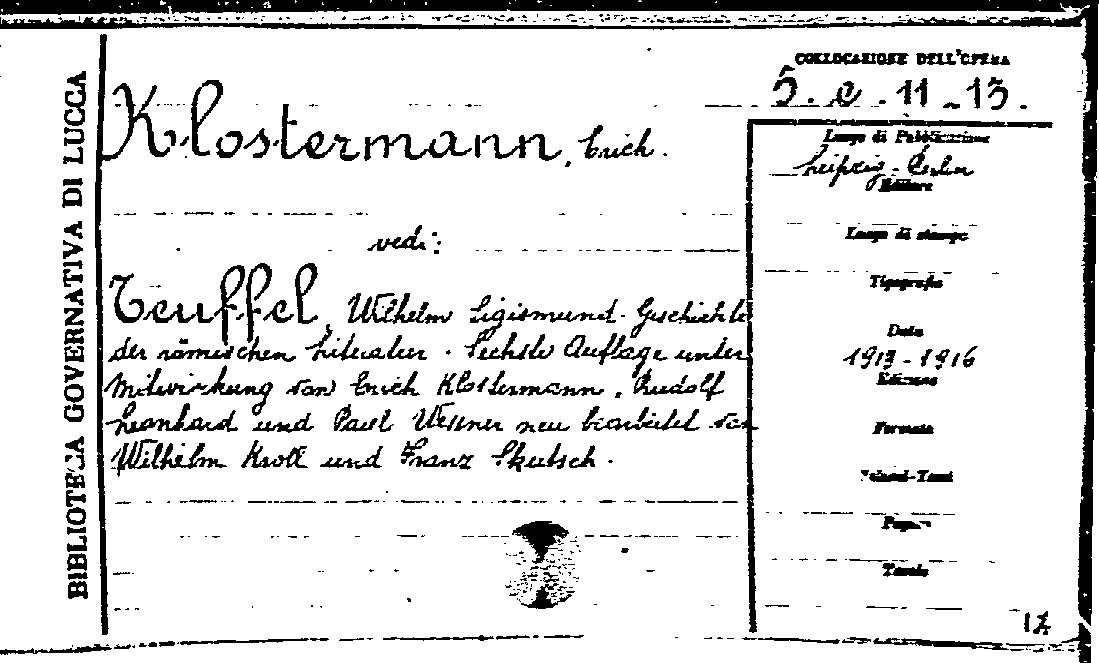 BIBLIOTECA GOVERNATIVA DI LUCCA
COLLOCAZIONE DELL'OPERA
5. e. 11-13.
Klostermann, Erich.
vedi:
Teuffel, Wilhelm Sigismund. Geschichte
der römischen Literatur. Sechste Auflage unter
Mitwirkung von Erich Klostermann, Rudolf
Leonhard und Paul Wessner neu bearbeitet von
Wilhelm Kroll und Franz Skutsch.
Luogo di Pubblicazione
Leipzig-Berlin
Editore
Luogo di stampa
Tipografia
Data
1913-1916
Edizione
Formato
Volumi-Tomi
Pagine
Tavole